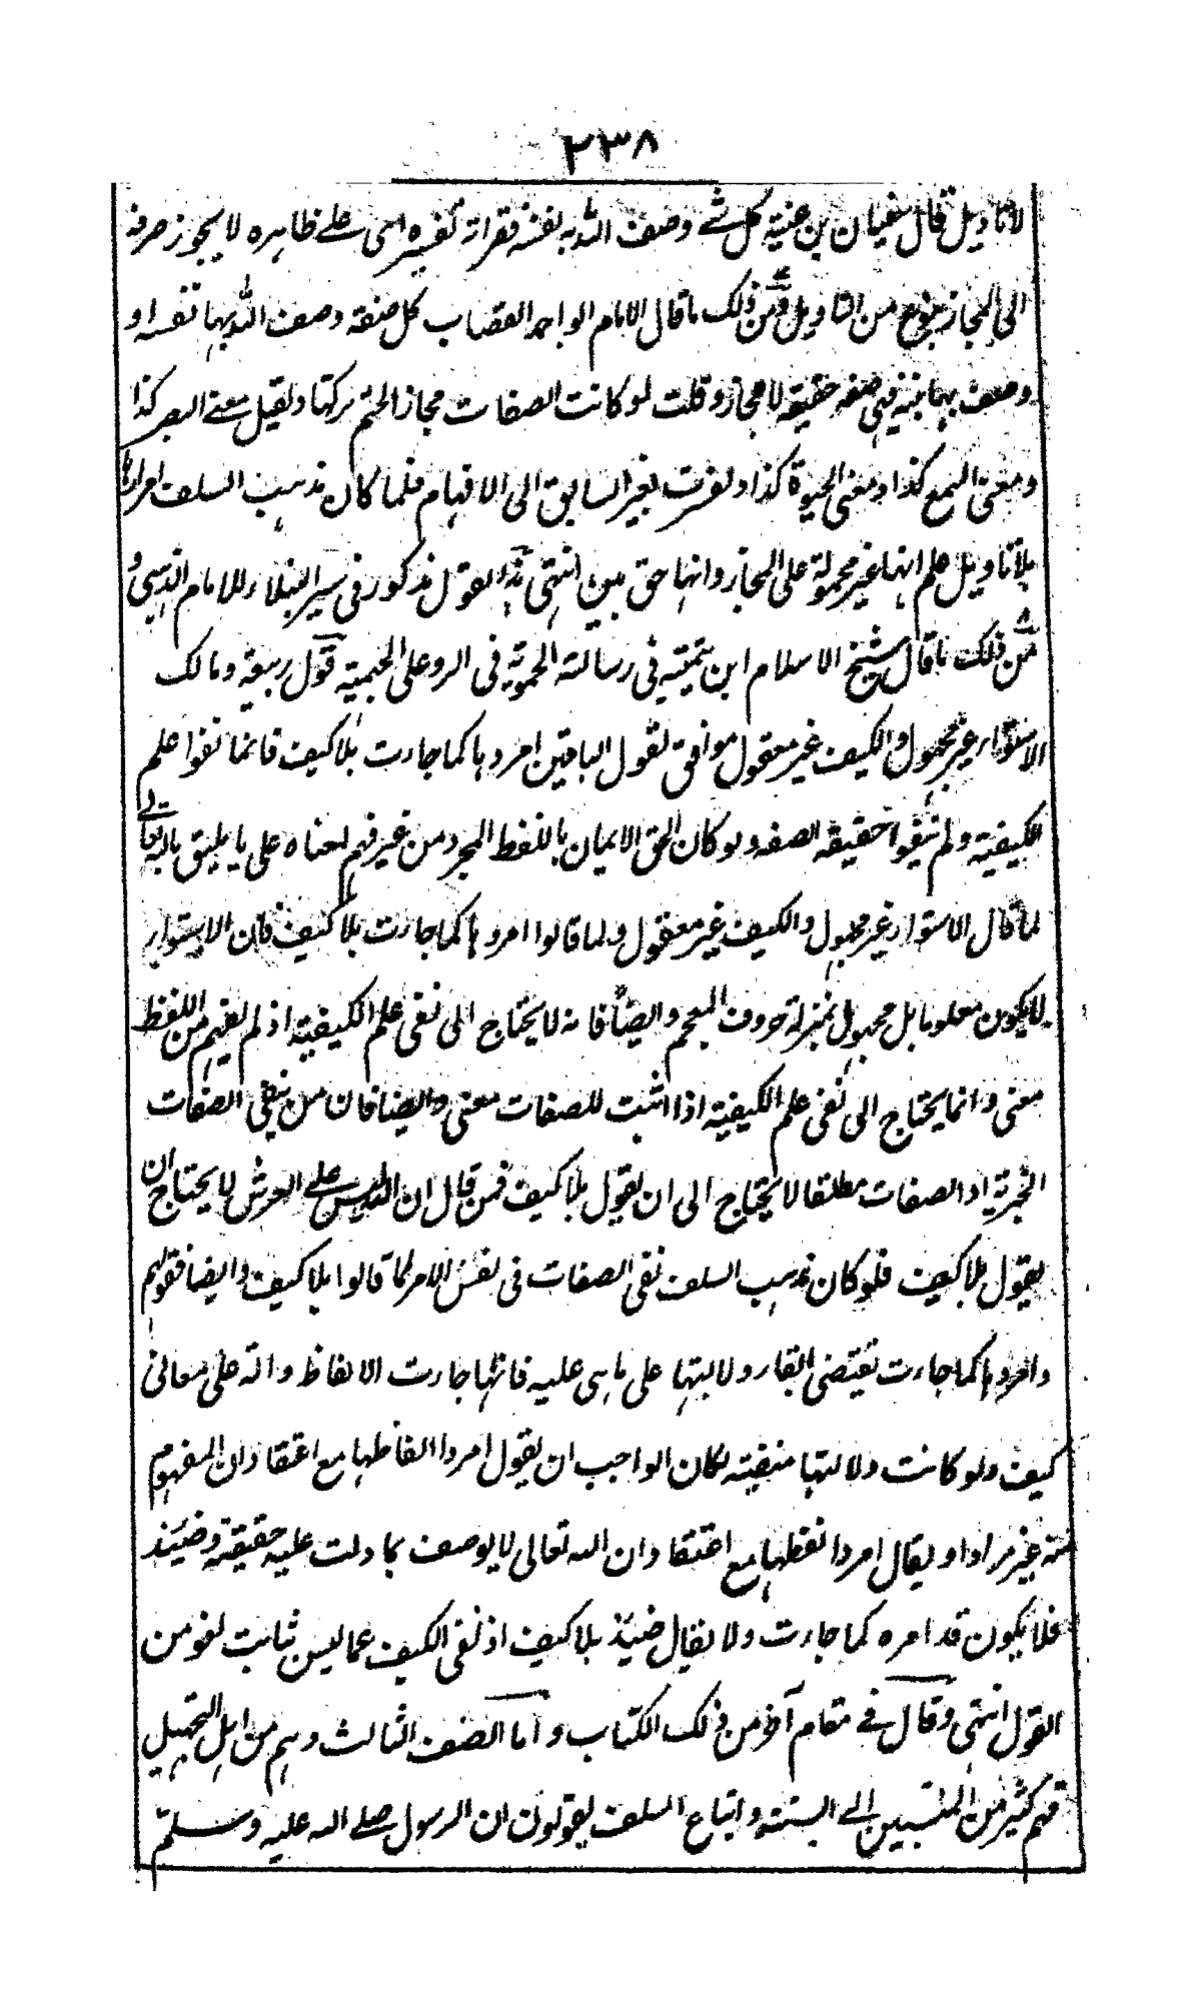 ٢٣٨
لا تاويل قال سفيان بن عنيية كل شے وصف اللہ به نفسه فقراءة تفسيره اى علے ظاهره لا يجوز صرفه
الى المجاز بنوع من التاويل ومن ذلك ما قال الامام ابو احمد القصاب كل صفة وصف اللہ بها نفسه او
وصف بها نبيه فهى صفة حقيقة لا مجاز وقلت لو كانت الصفات مجازا لحتم تركها ولقيل معنے البصر كذا
ومعنى السمع كذا ومعنى الحيوة كذا ولفسرت بغير السابق الى الافهام فلما كان مذهب السلف امرارها
بلا تاويل علم انها غير محمولة على المجاز وانها حق مبين انتهى هذا القول مذكور فى سير النبلاء للامام الذهبى و
من ذلك ما قال شيخ الاسلام ابن تيمية فى رسالته الحموية فى الرد على الجهمية قول ربيعة ومالك
الاستواء غير مجهول والكيف غير معقول موافق لقول الباقين امروها كما جاءت بلا كيف فانما نفوا علم
الكيفية ولم ينفوا حقيقة الصفة ولو كان الحق الايمان باللفظ المجرد من غير فهم لمعناه على ما يليق بالله تعالے
لما قال الاستواء غير مجهول والكيف غير معقول ولما قالوا امروها كما جاءت بلا كيف فان الاستواء
لا يكون معلوما بل مجهول بمنزلة حروف المعجم وايضا فانه لا يحتاج الى نفى علم الكيفية اذ لم يفهم من اللفظ
معنى وانما يحتاج الى نفى علم الكيفية اذا اثبت للصفات معنى وايضا فان من ينفى الصفات
الخبرية او الصفات مطلقا لا يحتاج الى ان يقول بلا كيف فمن قال ان اللہ ليس علے العرش لا يحتاج ان
يقول بلا كيف فلو كان مذهب السلف نفى الصفات فى نفس الامر لما قالوا بلا كيف وايضا فقولهم
وامروها كما جاءت تقتضى ابقاء دلالتها على ما هى عليه فانها جاءت الالفاظ دالة على معانى
كيف ولو كانت دلالتها منفية لكان الواجب ان يقول امروا الفاظها مع اعتقاد ان المفهوم
منه غير مراد او يقال امروا لفظها مع اعتقاد ان الله تعالى لا يوصف بما دلت عليه حقيقة وحينئذ
فلا يكون قد امره كما جاءت ولا يقال حينئذ بلا كيف اذ نفى الكيف عما ليس ثابت لغو من
القول انتهى وقال فے مقام آخر من ذلك الكتاب واما الصنف الثالث وهم من اهل التجهيل
فهم كثير من المنتسبين الے السنة واتباع السلف يقولون ان الرسول صلے الله عليه وسلم